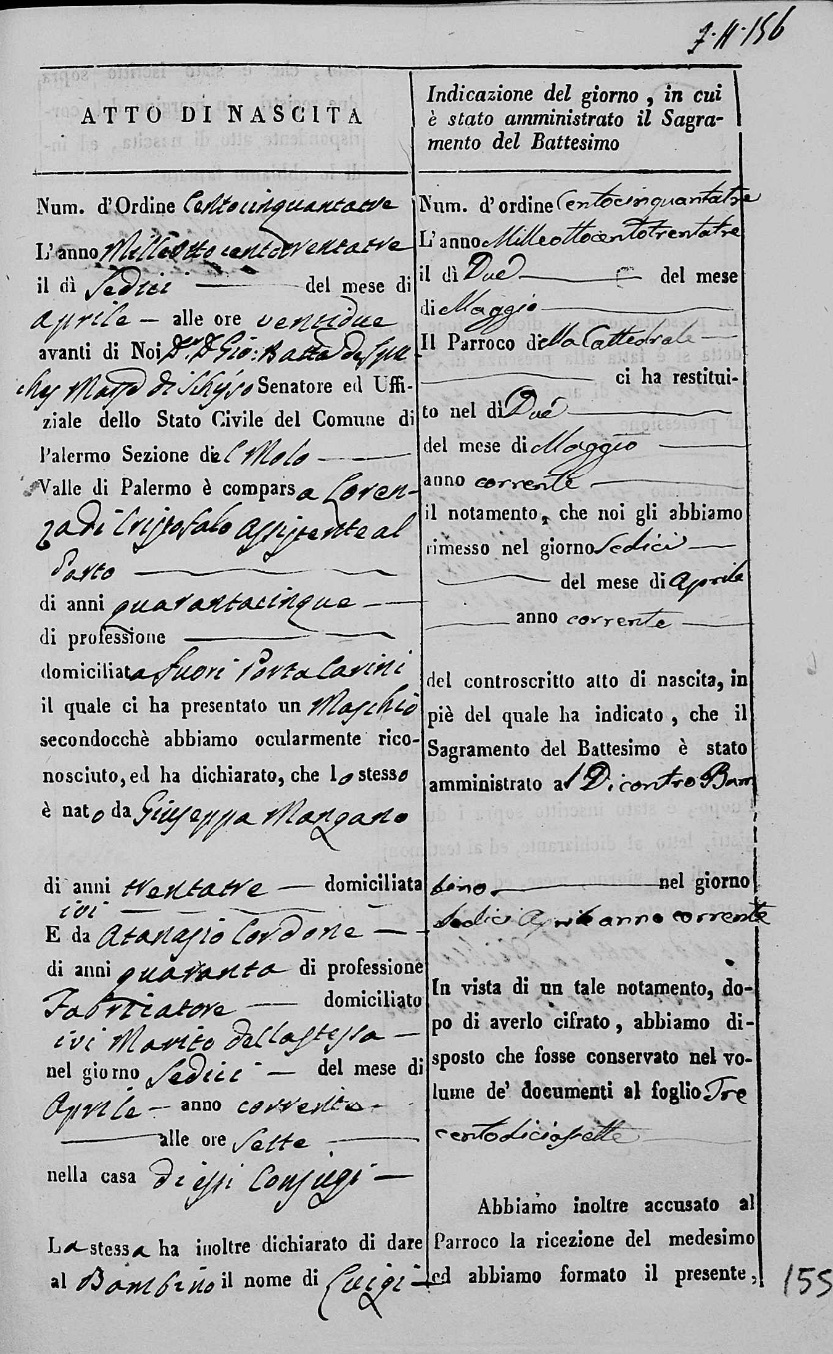 ATTO DI NASCITA
Num. d'Ordine Centocinquantatre
L'anno Milleotto cento trentatre
il dì Sedici del mese di
Aprile alle ore ventidue
avanti di Noi D. D. Gio: Batta de Spu
ches Senatore ed Uffi-
ziale dello Stato Civile del Comune di
Palermo Sezione del Molo
Valle di Palermo è comparsa Loren-
za di Cristofalo Assistente al
Parto
di anni quarantacinque
di professione
domiciliata fuori Porta Carini
il quale ci ha presentato un Maschio
secondocchè abbiamo ocularmente rico-
nosciuto, ed ha dichiarato, che lo stesso
è nato da Giuseppa Mangano
di anni trentatre domiciliata
ivi
E da Atanasio Cordone
di anni quaranta di professione
Fabricatore domiciliato
ivi Marito della stessa
nel giorno Sedici del mese di
Aprile anno corrente
alle ore Sette
nella casa di essi Conjugi
La stessa ha inoltre dichiarato di dare
al Bambino il nome di Luigi
Indicazione del giorno, in cui
è stato amministrato il Sagra-
mento del Battesimo
Num. d'ordine Centocinquantatre
L'anno Milleottocentotrentatre
il dì Due del mese
di Maggio
Il Parroco della Cattedrale
ci ha restitui-
to nel dì Due
del mese di Maggio
anno corrente
il notamento, che noi gli abbiamo
rimesso nel giorno Sedici
del mese di Aprile
anno corrente
del controscritto atto di nascita, in
piè del quale ha indicato, che il
Sagramento del Battesimo è stato
amministrato al Dicontro Bam
bino nel giorno
Sedici Aprile anno corrente
In vista di un tale notamento, do-
po di averlo cifrato, abbiamo di-
sposto che fosse conservato nel vo-
lume de' documenti al foglio Tre
centodiciassette
Abbiamo inoltre accusato al
Parroco la ricezione del medesimo
ed abbiamo formato il presente,
155